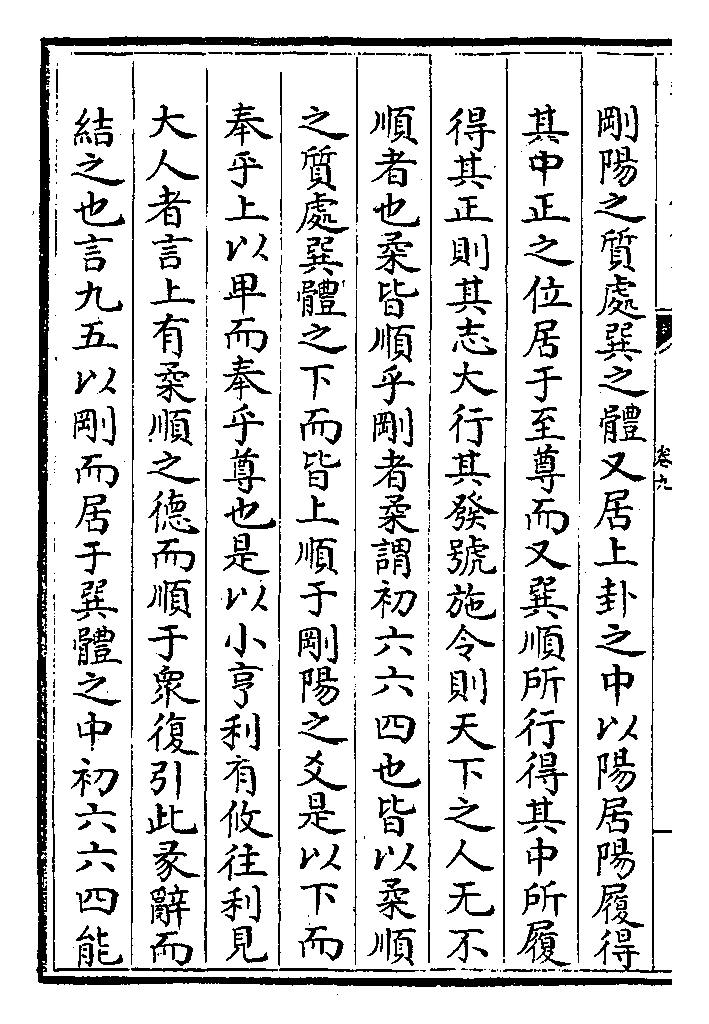 剛陽之質處巽之體又居上卦之中以陽居陽履得
其中正之位居于至尊而又巽順所行得其中所履
得其正則其志大行其發號施令則天下之人无不
順者也柔皆順乎剛者柔謂初六六四也皆以柔順
之質處巽體之下而皆上順于剛陽之爻是以下而
奉乎上以卑而奉乎尊也是以小亨利有攸往利見
大人者言上有柔順之德而順于衆復引此彖辭而
結之也言九五以剛而居于巽體之中初六六四能
卷九